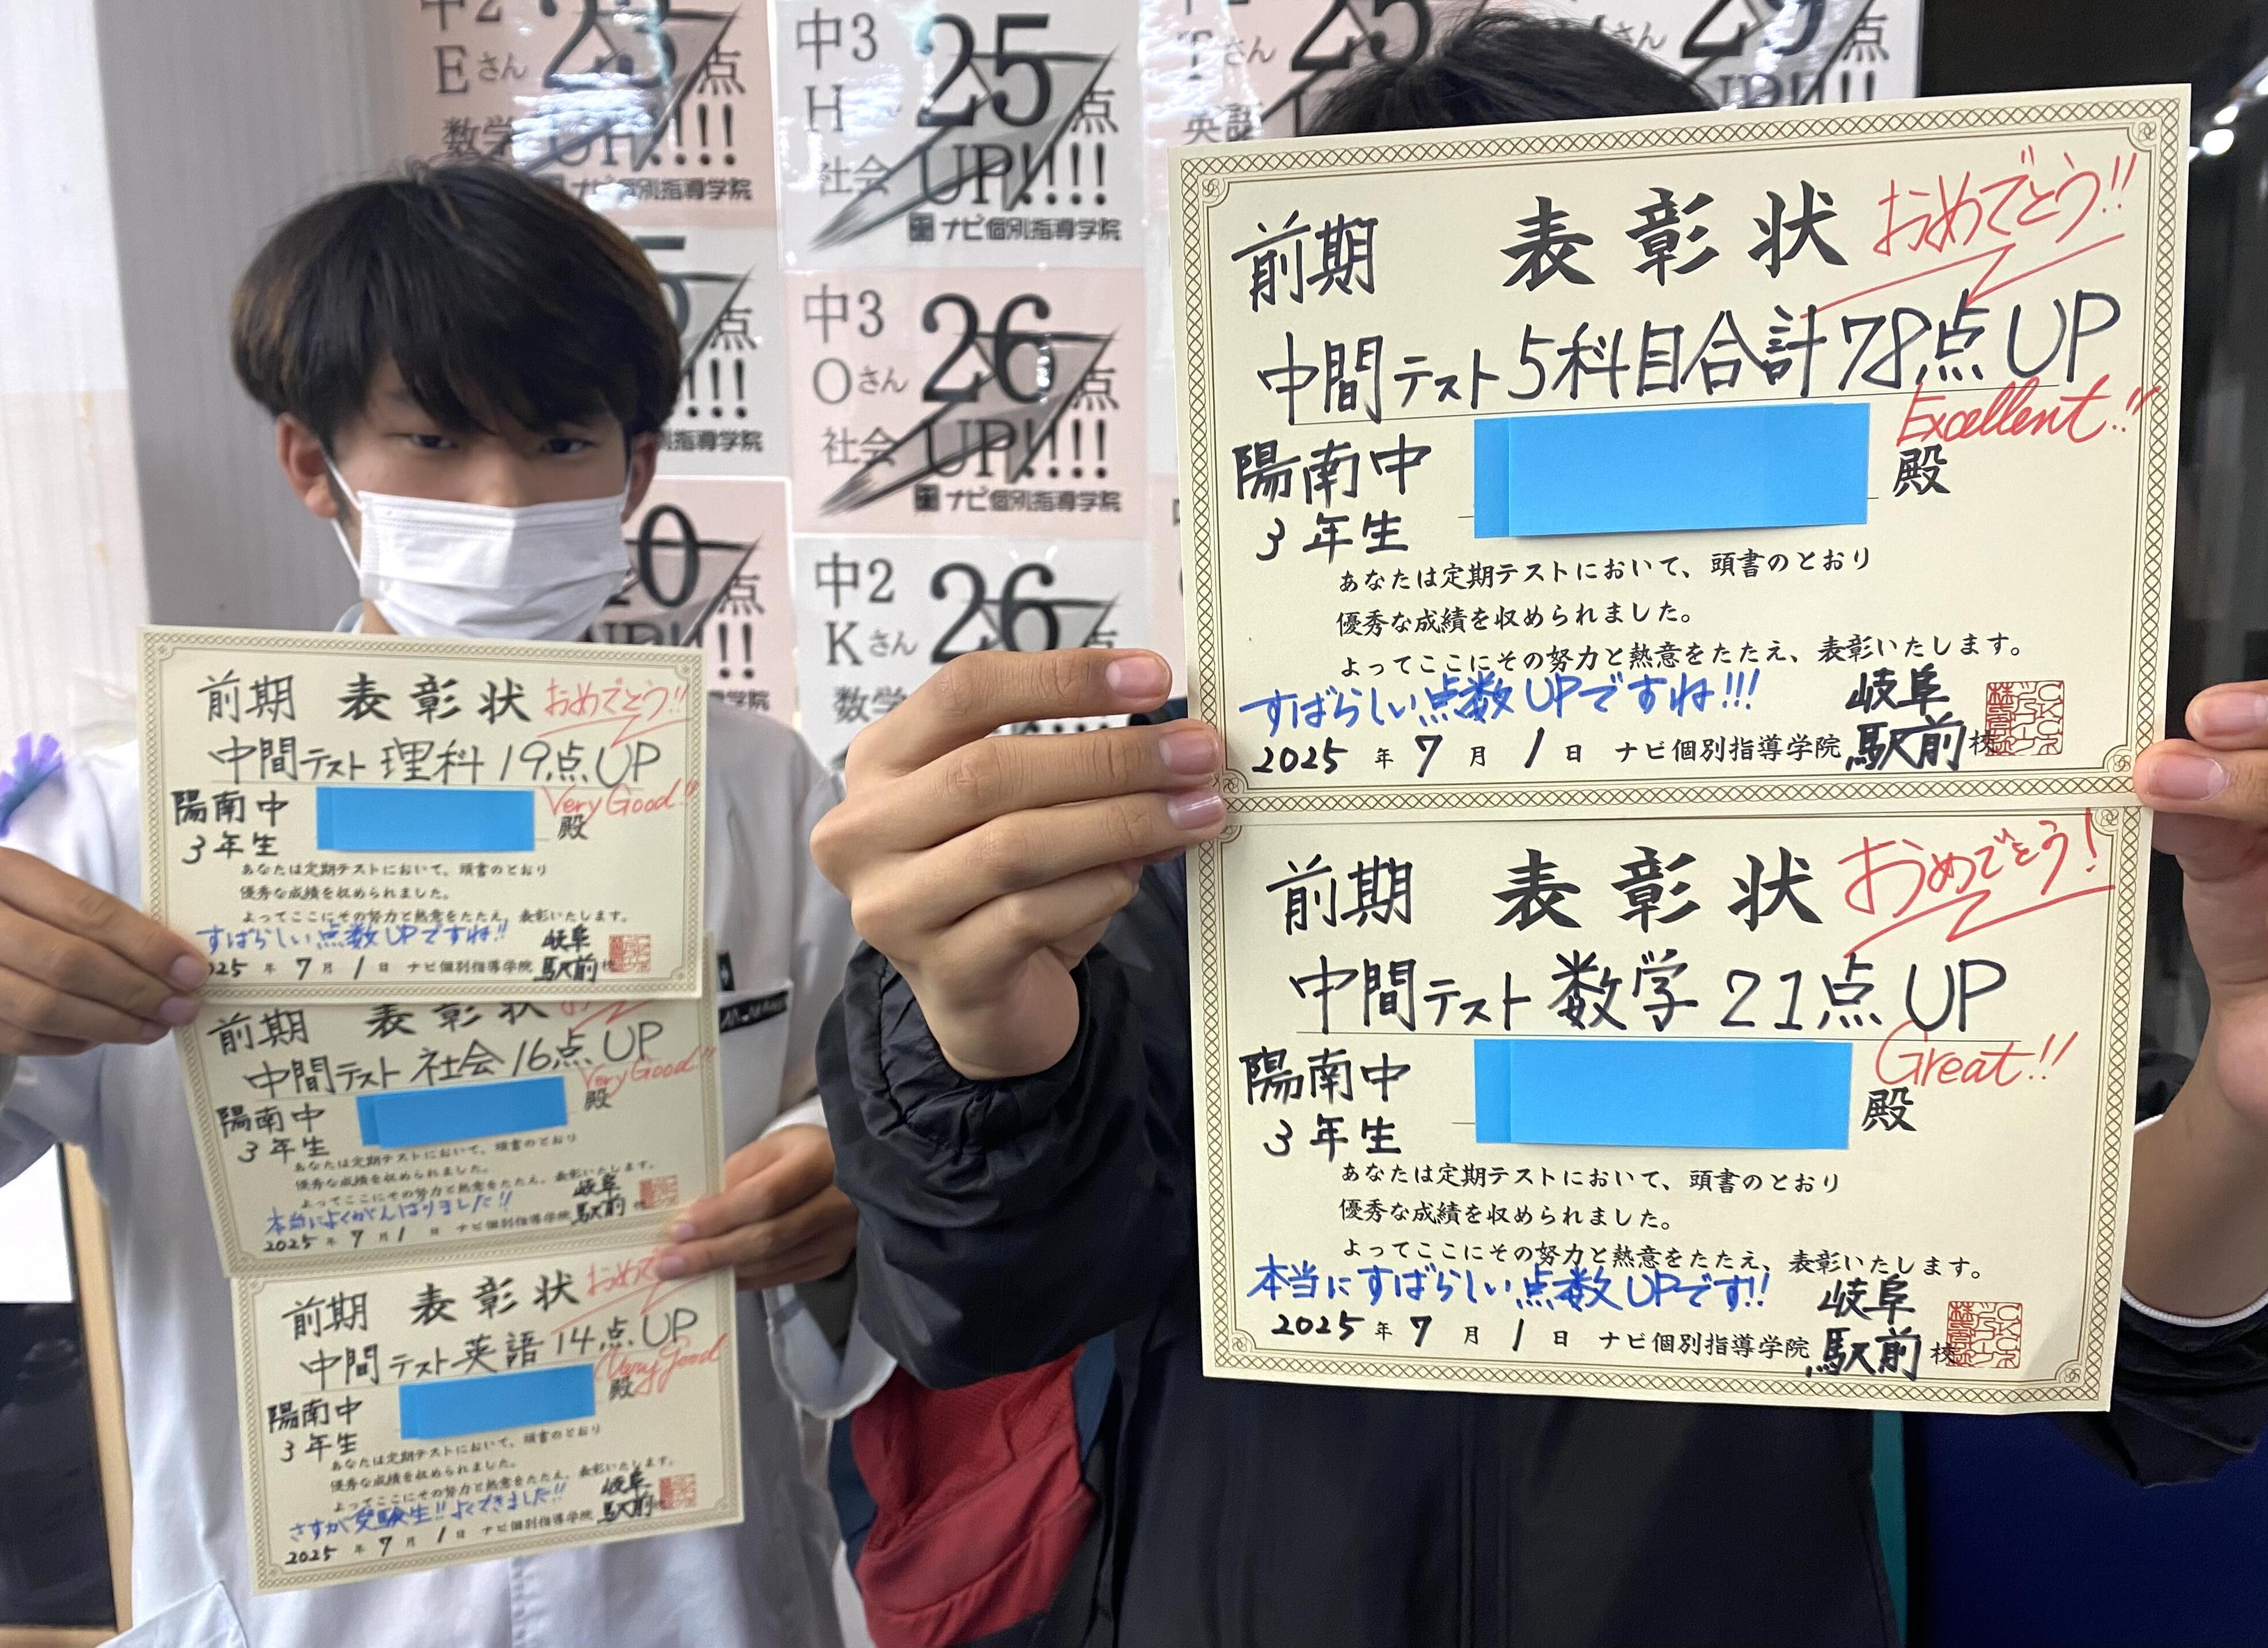 中2
Eさん
数学
23点
UP!!!!
ナビ個別指導学院
中3
H
社会
25点
UP!!!!
ナビ個別指導学院
英語
25
さん
29点
点
!!!
個別指導学院
中3
Oさん
社会
26点
UP!!!!
ナビ個別指導学院
0点
UP!!!!
導学院
中2
Kさん
数学
26点
前期 表彰状 おめでとう!!
中間テスト 理科 19点UP
Very Good!!
陽南中
3年生
殿
あなたは定期テストにおいて、頭書のとおり
優秀な成績を収められました。
よってここにその努力と熱意をたたえ、表彰いたします。
すばらしい点数UPですね!!
岐阜
025年7月1日 ナビ個別指導学院 駅前校
前期 表彰状
中間テスト 社会 16点UP
Very Good!!
陽南中
3年生
殿
あなたは定期テストにおいて、頭書のとおり
優秀な成績を収められました。
よってここにその努力と熱意をたたえ、表彰いたします。
本当によくがんばりました!!
岐阜
2025年7月1日 ナビ個別指導学院 駅前校
前期 表彰状 おめで
中間テスト 英語 14点UP
Very Good
陽南中
3年生
殿
あなたは定期テストにおいて、頭書のとおり
優秀な成績を収められました。
よってここにその努力と熱意をたたえ、表彰いたします。
さすが受験生!! よくできました!!
岐阜
2025年7月1日 ナビ個別指導学院 駅前校
前期 表彰状 おめでとう!!
中間テスト 5科目合計78点UP
Excellent!!
陽南中
3年生
殿
あなたは定期テストにおいて、頭書のとおり
優秀な成績を収められました。
よってここにその努力と熱意をたたえ、表彰いたします。
すばらしい点数UPですね!!!
岐阜
2025年7月1日 ナビ個別指導学院 駅前校
前期 表彰状 おめでとう!
中間テスト 数学 21点UP
Great!!
陽南中
3年生
殿
あなたは定期テストにおいて、頭書のとおり
優秀な成績を収められました。
よってここにその努力と熱意をたたえ、表彰いたします。
本当にすばらしい点数UPです!!
岐阜
2025年7月1日 ナビ個別指導学院 駅前校